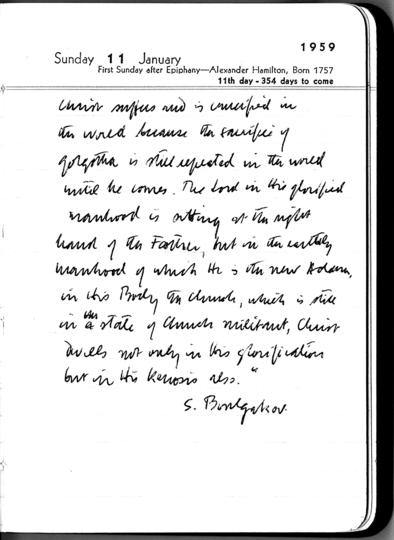 1959
Sunday 11 January
First Sunday after Epiphany—Alexander Hamilton, Born 1757
11th day - 354 days to come
Christ suffers and is crucified in
the world because the sacrifice of
golgotha is still repeated in the world
until he comes. The Lord in His glorified
manhood is sitting at the right
hand of the Father, but in the earthly
manhood of which He is the new Adam,
in His Body the Church, which is still
in the state of Church militant, Christ
dwells not only in His glorification
but in His Kenosis also."
S. Boulgakov.